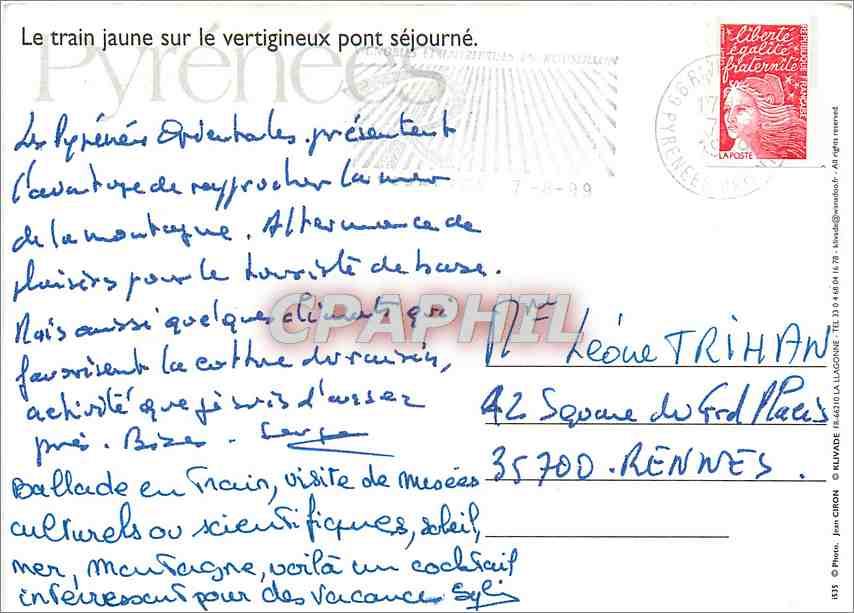 Le train jaune sur le vertigineux pont séjourné.
Pyrénées
VIGNOBLES EN ROUSSILLON
7-8-99
66 PYRENEES
liberté
égalité
fraternité
REPUBLIQUE FRANÇAISE
LA POSTE
Les Pyrénées Orientales présentent
l'avantage de rapprocher la mer
de la montagne. Alternance de
plaisirs pour le touriste de base.
Mais aussi quelques climats qui
favorisent la culture du raisin,
activité que je suis d'assez
près. Bises. Serge
Ballade en Train, visite de musées
culturels ou scientifiques, soleil,
mer, montagne, voilà un cocktail
intéressant pour des vacances Sylvie
CPAPHIL
Léone TRIHAN
42 Square du Grd Placis
35700. RENNES.
i535 © Photo. Jean CIRON © KLIVADE FR-66210 LA LLAGONNE - TEL 33 0 4 68 04 16 78 - klivade@wanadoo.fr - All rights reserved.